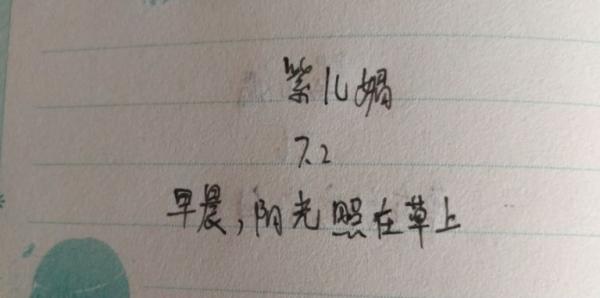 紫儿嫣
7.2
早晨，阳光照在草上